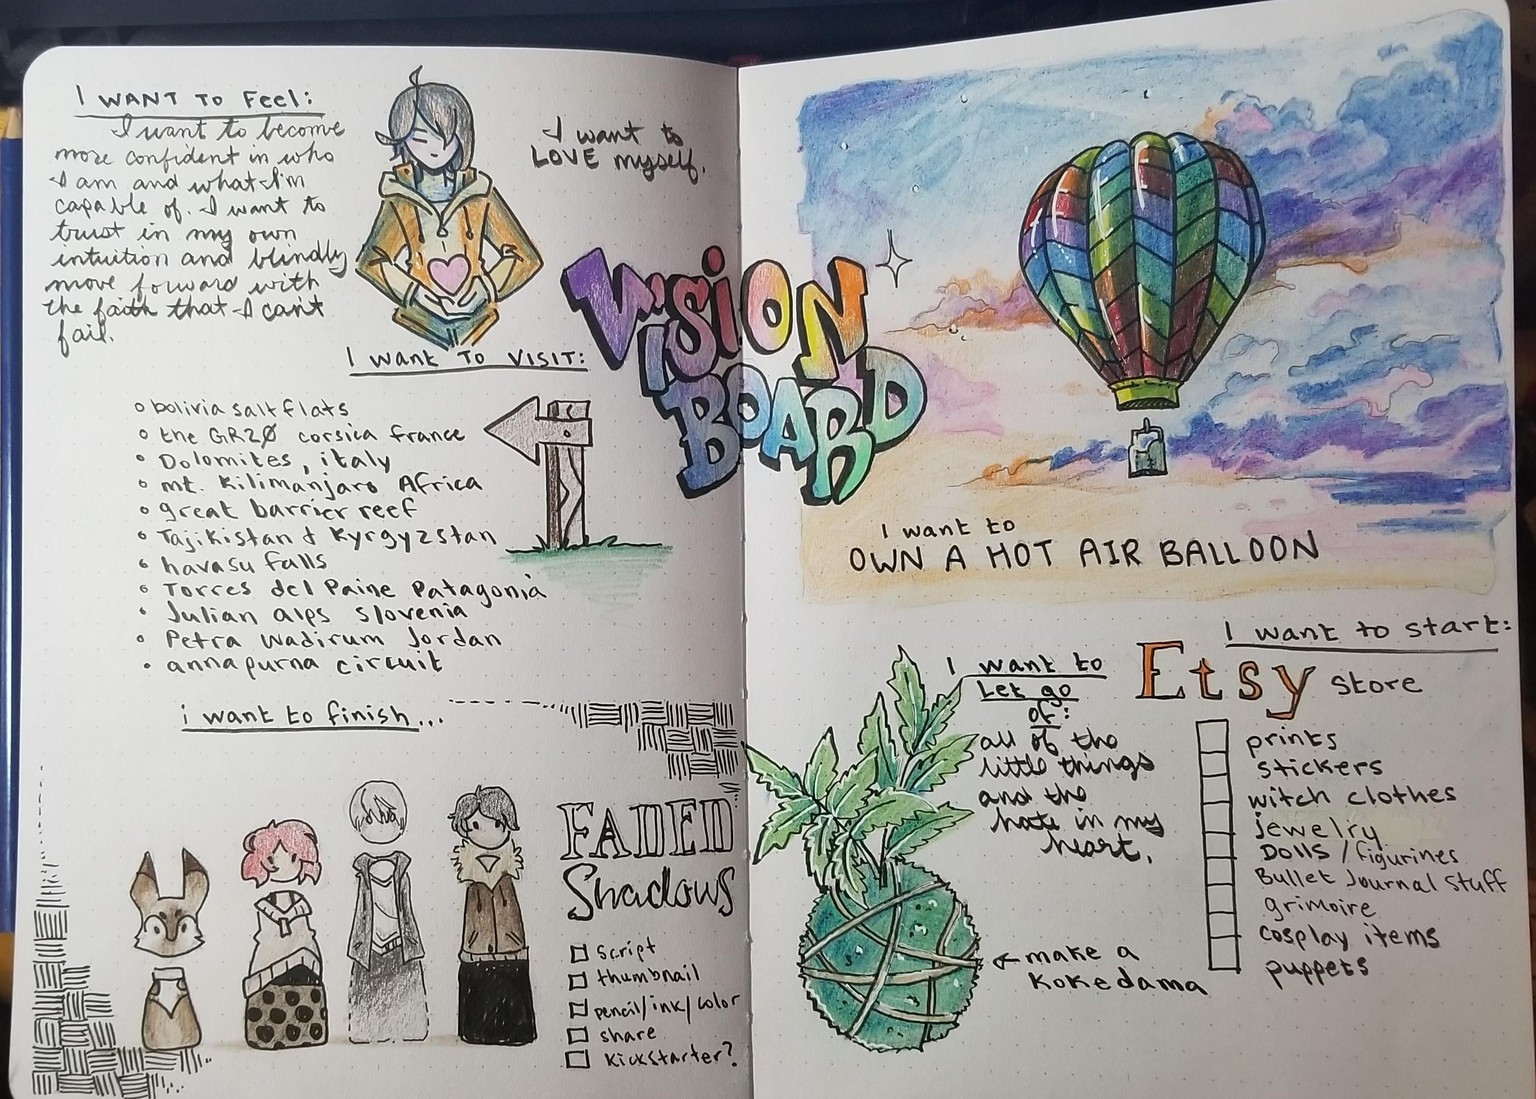 I WANT TO Feel:
I want to become
more confident in who
I am and what I'm
capable of. I want to
trust in my own
intuition and blindly
move forward with
the faith that I can't
fail.
I want to
LOVE myself.
VISION
BOARD
I want TO VISIT:
bolivia salt flats
the GR20 corsica france
Dolomites, italy
mt. Kilimanjaro Africa
great barrier reef
Tajikistan & Kyrgyzstan
havasu falls
Torres del Paine Patagonia
Julian alps slovenia
Petra wadirum Jordan
annapurna circuit
i want to finish...
FADED
Shadows
script
thumbnail
pencil/ink/color
share
kickstarter?
I want to
OWN A HOT AIR BALLOON
I want to
Let go
of:
all of the
little things
and the
hate in my
heart.
make a
kokedama
I want to start:
Etsy store
prints
stickers
witch clothes
jewelry
Dolls / figurines
Bullet Journal Stuff
grimoire
cosplay items
puppets